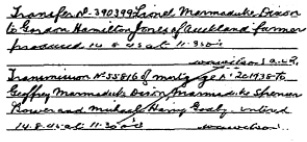 Transfer No. 390399 Lionel Marmaduke Dixon
to Gordon Hamilton Jones of Auckland farmer
produced 14.8.45 at 11.30 o'c
A.L.R.
Transmission No 35816 of mortgage No. 201938 to
Geoffrey Marmaduke Dixon Marmaduke Spencer
Bower and Michael Harry Godby entered
14.8.45 at 11.30 o'c